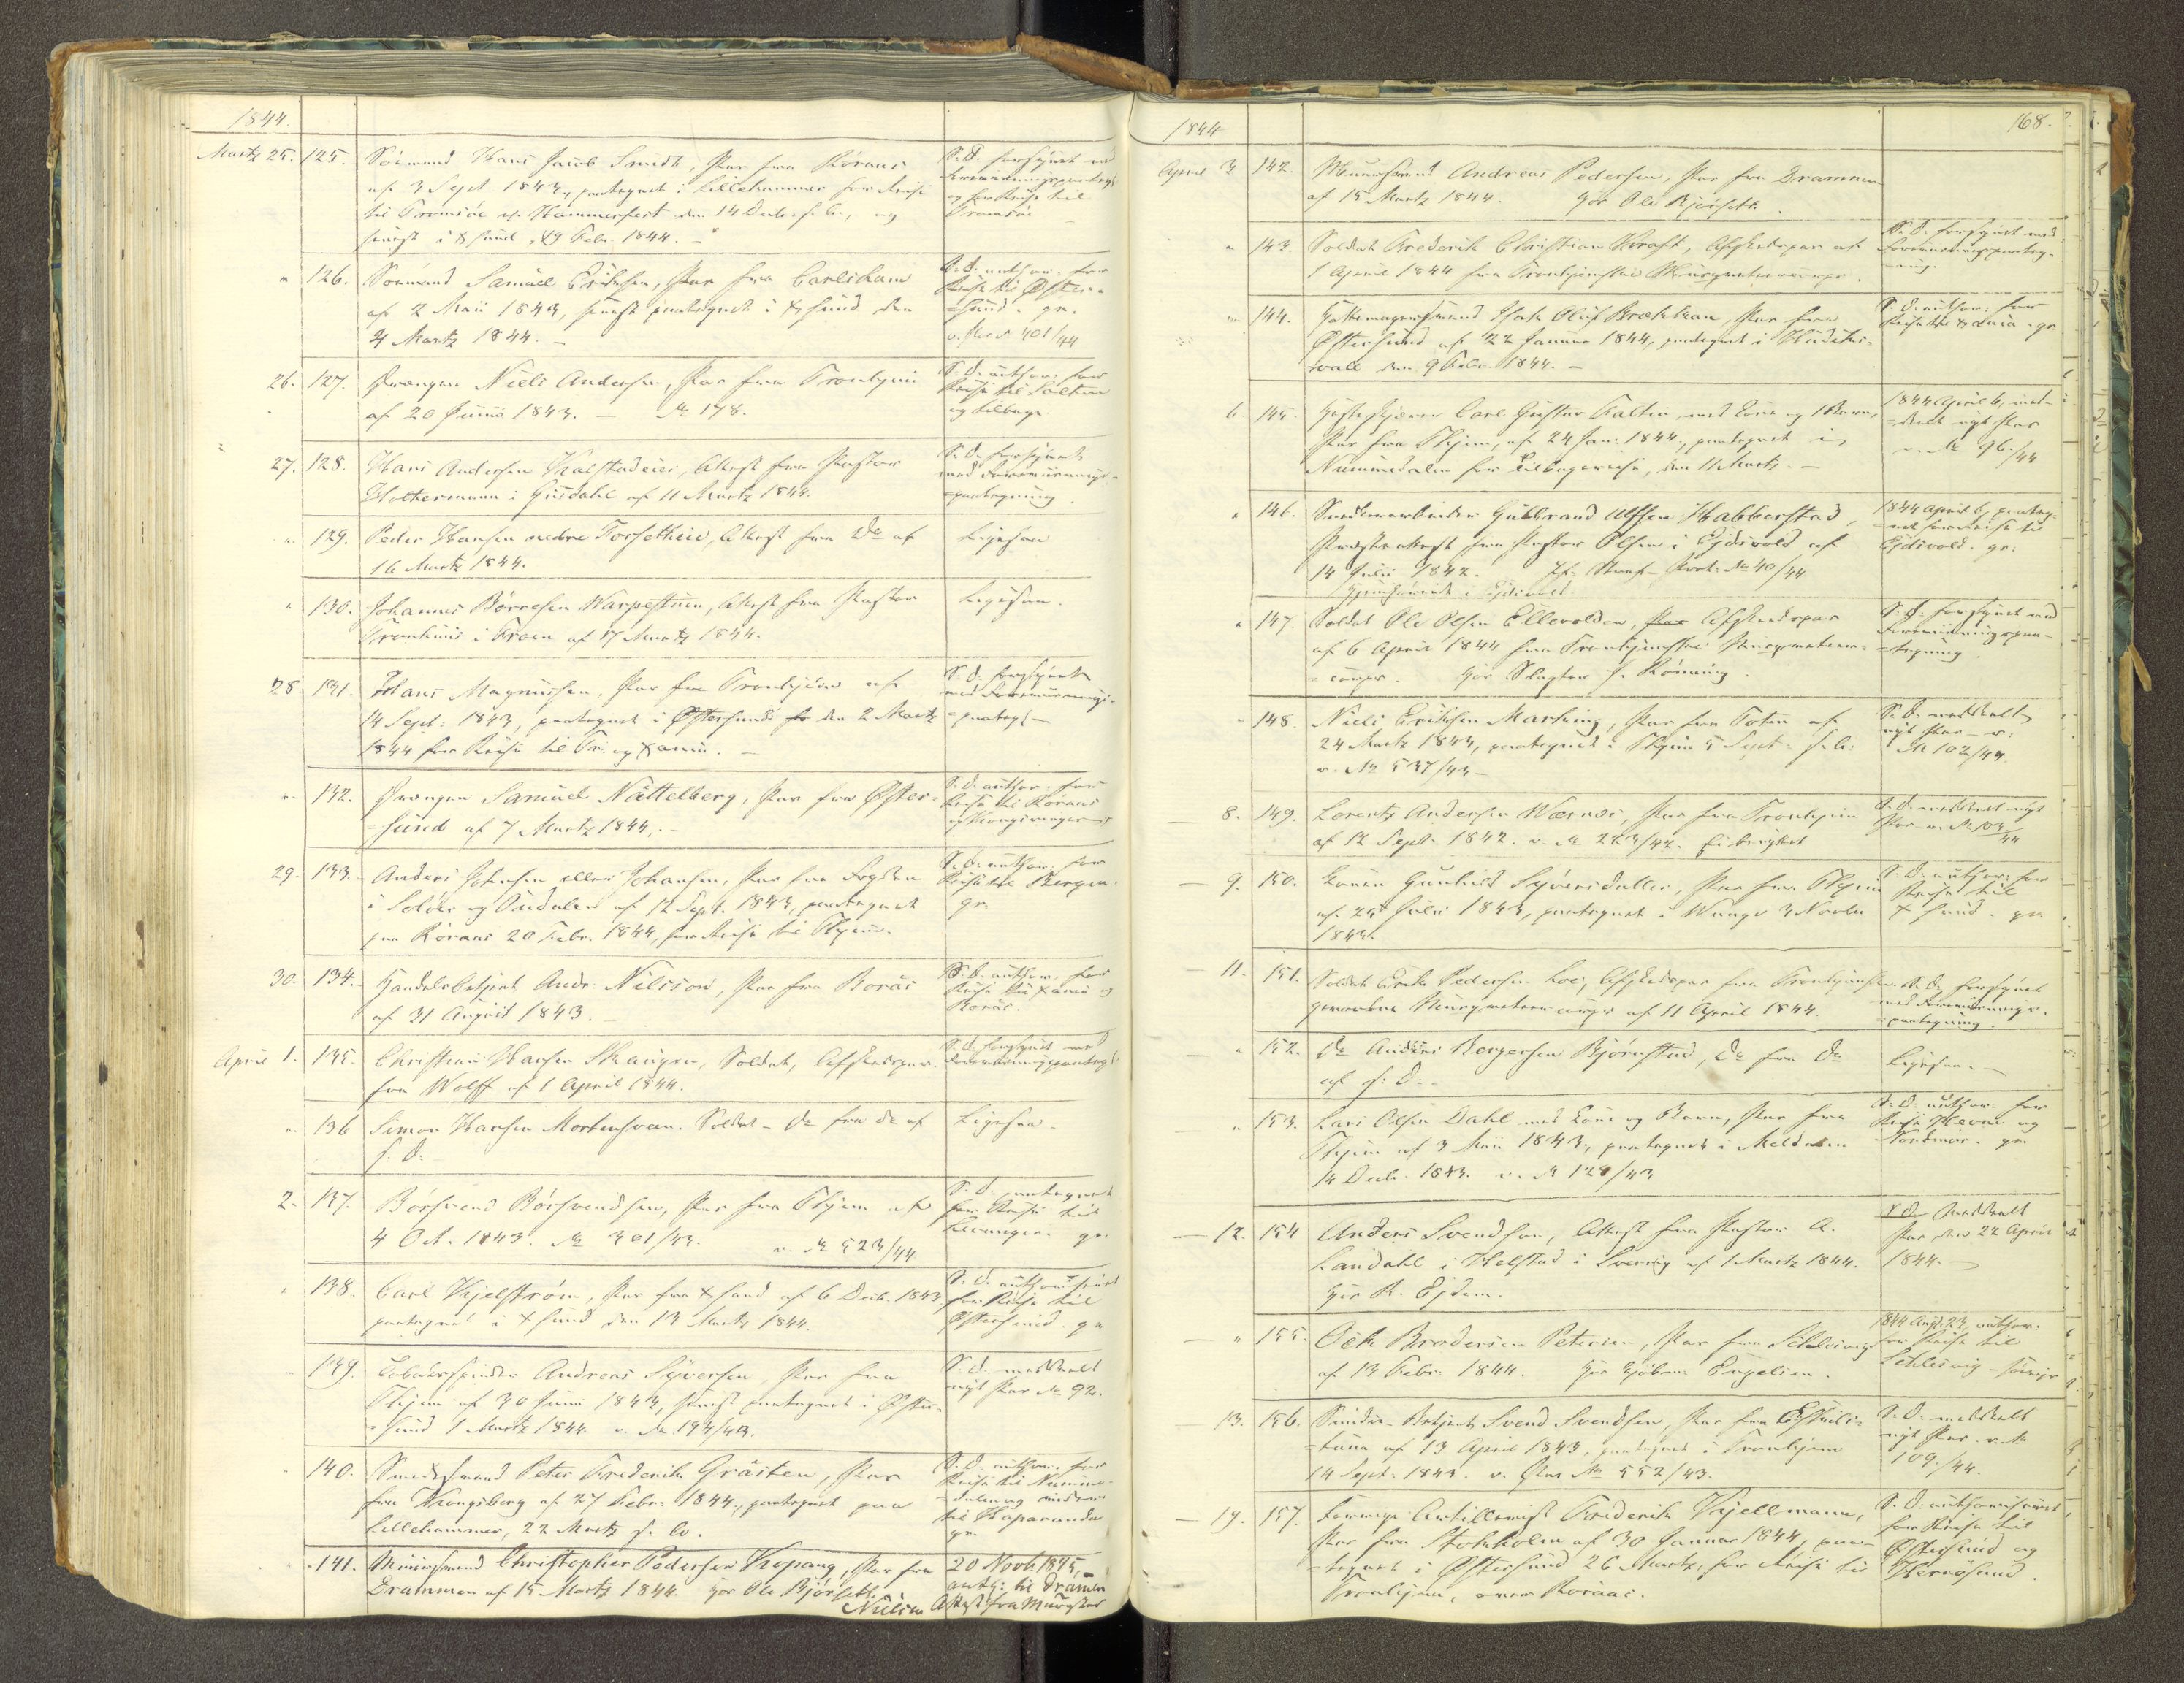 1844.
Martz 25. 125. Sömand Hans Jacob Smidt, Pas fra Röraas
af 3 Sept 1843, paategnet i Lillehammer for Reise
til Tromsöe og Hammerfest den 14 Decbr f. A., og
senest i X sund, 29 Febr. 1844. –
S. D. forsynet med
og for Reise til
Tromsöe
" 126. Sömand Samuel Erichsen, Pas fra Carlsham
af 2 Maii 1843, senest paategnet i X sund den
4 Martz 1844. –
S. D. author. for
Reise til Öster-
sund. gr.
v. No 401/44
26. 127. Drengen Niels Andersen, Pas fra Tronhjem
af 20 Junii 1843. – No 178.
S. D. author. for
Reise til Salten
og tilbage.
27. 128. Hans Andersen Kalstadeier, Attest fra Pastor
Holtermann i Gusdahl af 11 Martz 1844.
S. D. forsynet
med Foremönnings-
paategning
" 129. Peder Hansen nedre Forsetheie, Attest fra Do af
16 Martz 1844.
Ligesaa
" 130. Johannes Börresen Warpestuen, Attest fra Pastor
i Froen af 17 Martz 1844.
Ligesaa.
28. 131. Hans Magnussen, Pas fra Tronhjem af
14 Sept: 1843, paategnet i Östersund den 2 Martz
1844 for Reise til Tr. og Xania. –
S. D. forsynet
med Foremönnings-
paateg. –
" 132. Drengen Samuel Nättelberg, Pas fra Öster-
sund af 7 Martz 1844. –
S. D. author. for
Reise til Röraas
og Kongsvinger
29. 133. Anders Johnsen eller Johansen, Pas fra Fogden
i Solöer og Oudalen af 12 Sept. 1843, paategnet
paa Röraas 20 Febr. 1844, for Reise til Thjem.
S. D. author. for
Reise til Bergen.
gr.
30. 134. Handelsbetjent Andr: Nilsson, Pas fra Borås
af 31 August 1843. –
S. D. author. for
Reise til Xania og
Borås.
April 1. 135. Christian Hansen Skaugen, Soldat, Afskedspas
fra Wolff af 1 April 1844.
S. D. forsynet med
Foremönningspaateg.
" 136 Simon Hansen Mortensveen. Soldat – Do fra do af
s. D.
Ligesaa.
2. 137. Börsvend Börsvendsen, Pas fra Thjem af
4 Oct. 1843. No 301/43. v. No 523/44
S. D. paategnet
for Reise til
Levanger. gr.
" 138. Carl Kjelström, Pas fra X sund af 6 Decb. 1843
paategnet i X sund den 13 Martz 1844.
S. D. authoriseret
for Reise til
Östersund. gr
139. Tobakspinder Andreas Syversen, Pas fra
Thjem af 30 Juni 1843, senest paategnet i Öster-
sund 1 Martz 1844. v. No 194/43.
S. D. meddeelt
nyt Pas No 92.
140. Smedsvend Peter Frederik Gråsten, Pas
fra Kongsberg af 27 Febr. 1844, paategnet paa
Lillehammer, 22 Martz s. A.
S. D. author. for
Reise til Numme-
dalen og videre
til Haparanda
gr.
141. Muursvend Christopher Pedersen Krepang, Pas fra
Drammen af 15 Martz 1844. hos Ole Bjørseth.
20 Novb. 1845,
antg: til Dramen
Attest fra Muurmester
Nielsen
1844 168.
April 3 142. Muursvend Andreas Pedersen, Pas fra Drammen
af 15 Martz 1844. hos Ole Bjørseth.
" 143. Soldat Frederik Christian Kraft, Afskedspas af
1 April 1844 fra Tronhjemske Nurgerettscorps.
S. D. forsynet med
Foremönningspaateg-
ning.
144. Hattemagersvend Isak Oluf Bræktran, Pas fra
Östersund af 22 Januar 1844, paategnet i Hudiks-
wall den 9 Febr. 1844. –
S. D. author. for
Reise til Xania. gr.
6. 145. Carl Gustav Faltin, med Kone og 1 Barn,
Pas fra Thjem, af 24 Jan: 1844, paategnet i
Nummedalen for Tilbagereise, den 11 Martz. –
1844 April 6, med-
deelt nyt Pas
v. No 96./44
" 146. Gulbrand Ulfsen Habberstad,
Præsteattest fra Pastor Olsen i Ejdsvold af
14 Julii 1842. Jfr. Straf-Prot: No 40/44
Hjemhørende i Ejdsvold
1844 April 6, paateg-
net for Reise til
Ejdsvold. gr.
" 147. Soldat Ole Olsen Ellevolden, Afskedspas
af 6 April 1844 fra Tronhjemske
corps. hos Slagter J. Rönning.
S. D. forsynet med
Foremönningspaa-
tegning.
" 148. Niels Erichsen Marking, Pas fra Toten af
24 Martz 1843, paategnet i Thjem 5 Sept: s. A.
v. No 537/43 –
S. D. meddeelt
nyt Pas – v.
No 102/44.
8. 149. Lorentz Andersen Wærnæs, Pas fra Tronhjem
af 12 Sept. 1842. v. No 223/42. Ei benyttet
S. D. meddeelt nyt
Pas v. No 103/44
9. 150. Konen Gunhild Syversdatter, Pas fra Thjem
af 25 Julii 1843, paategnet i Wange 3 Novbr
1843.
S. D. author. for
Reise til
X sund. gr
11. 151. Soldat Erik Pedersen Loe, Afskedspas fra Tronhjemske
gevorbne af 11 April 1844.
S. D. forsynet
med Foremönnings-
paategning.
" 152. Do Anders Bergersen Bjørnstad, Do fra Do
af s: D: –
Ligesaa. –
" 153. Lars Olsen Dahl med Kone og Barn, Pas fra
Thjem af 3 Maii 1843, paategnet i Meldalen
14 Decb. 1843. v. No 129/43
S. D. author. for
Reise Hevne og
Nordmør. gr.
12. 154 Anders Svendsen, Attest fra Pastor A.
Landahl i Helstad i Sverrig af 1 Martz 1844.
hos R. Ejdem.
S. D. Meddeelt
Pas den 22 April
1844. –
" 155. Ock Brodersen Petersen, Pas fra Schleswig
af 13 Febr. 1844. hos Kjøbm: Engelsen.
1844 Aug. 23, author.
for Reise til
Schleswig –
13. 156. Svend Svendsen, Pas fra Eskils-
tuna af 13 April 1843, paategnet i Tronhjem
14 Sept: 1843. v. Pas No 552/43.
S. D. meddeelt
nyt Pas. v. No
109./44.
19. 157. Artillerist Frederik Kjellmann,
Pas fra Stokholm af 30 Januar 1844, paa-
tegnet i Östersund 26 Martz, for Reise til
Tronhjem, over Röraas.
S. D. authoriseret
for Reise til
Östersund og
Hernösand.